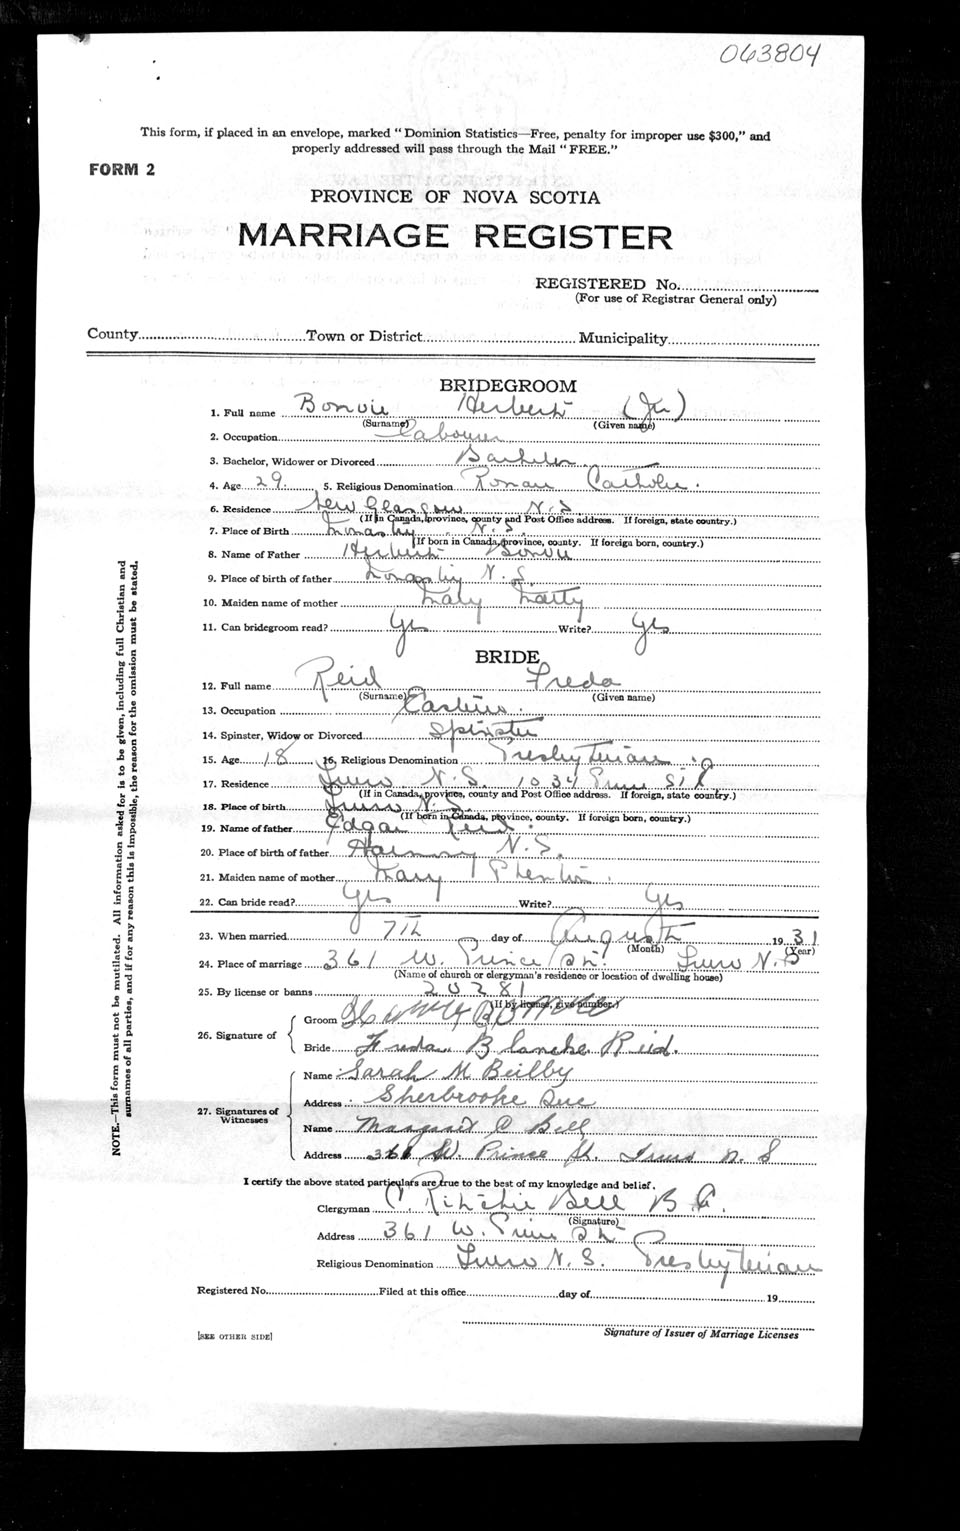 063804
This form, if placed in an envelope, marked “Dominion Statistics—Free, penalty for improper use $300,” and
properly addressed will pass through the Mail “FREE.”
FORM 2
PROVINCE OF NOVA SCOTIA
MARRIAGE REGISTER
REGISTERED No.
(For use of Registrar General only)
County Town or District Municipality
BRIDEGROOM
1. Full name Bonvie Herbert (Jr)
(Surname) (Given name)
2. Occupation Labourer
3. Bachelor, Widower or Divorced Bachelor
4. Age 29 5. Religious Denomination Roman Catholic.
6. Residence New Glasgow N.S.
(If in Canada, province, county and Post Office address. If foreign, state country.)
7. Place of Birth N.S.
(If born in Canada, province, county. If foreign born, country.)
8. Name of Father Herbert Bonvie
9. Place of birth of father N.S.
10. Maiden name of mother Mary
11. Can bridegroom read? Yes Write? Yes
BRIDE
12. Full name Reid Freda
(Surname) (Given name)
13. Occupation
14. Spinster, Widow or Divorced Spinster
15. Age 18 16. Religious Denomination Presbyterian
17. Residence Truro N.S. 1034 Prince St
(If in Canada, province, county and Post Office address. If foreign, state country.)
18. Place of birth Truro N.S.
(If born in Canada, province, county. If foreign born, country.)
19. Name of father Edgar Reid.
20. Place of birth of father N.S.
21. Maiden name of mother Mary
22. Can bride read? Yes Write? Yes
23. When married 7th day of August 1931
(Month) (Year)
24. Place of marriage 361 W. Prince St. Truro N.S
(Name of church or clergyman's residence or location of dwelling house)
25. By license or banns 20281
(If by license, give number.)
26. Signature of
Groom Bonvie
Bride Freda Blanche Reid.
27. Signatures of Witnesses
Name Sarah M Beilby
Address Sherbrooke Que
Name Margaret C Bell
Address 361 W. Prince St. Truro N.S
I certify the above stated particulars are true to the best of my knowledge and belief.
Clergyman C. Ritchie Bell B.A.
(Signature)
Address 361 W. Prince St
Religious Denomination Truro N.S. Presbyterian
Registered No. Filed at this office day of 19
[SEE OTHER SIDE]
Signature of Issuer of Marriage Licenses
NOTE.—This form must not be mutilated. All information asked for is to be given, including full Christian and
surnames of all parties, and if for any reason this is impossible, the reason for the omission must be stated.